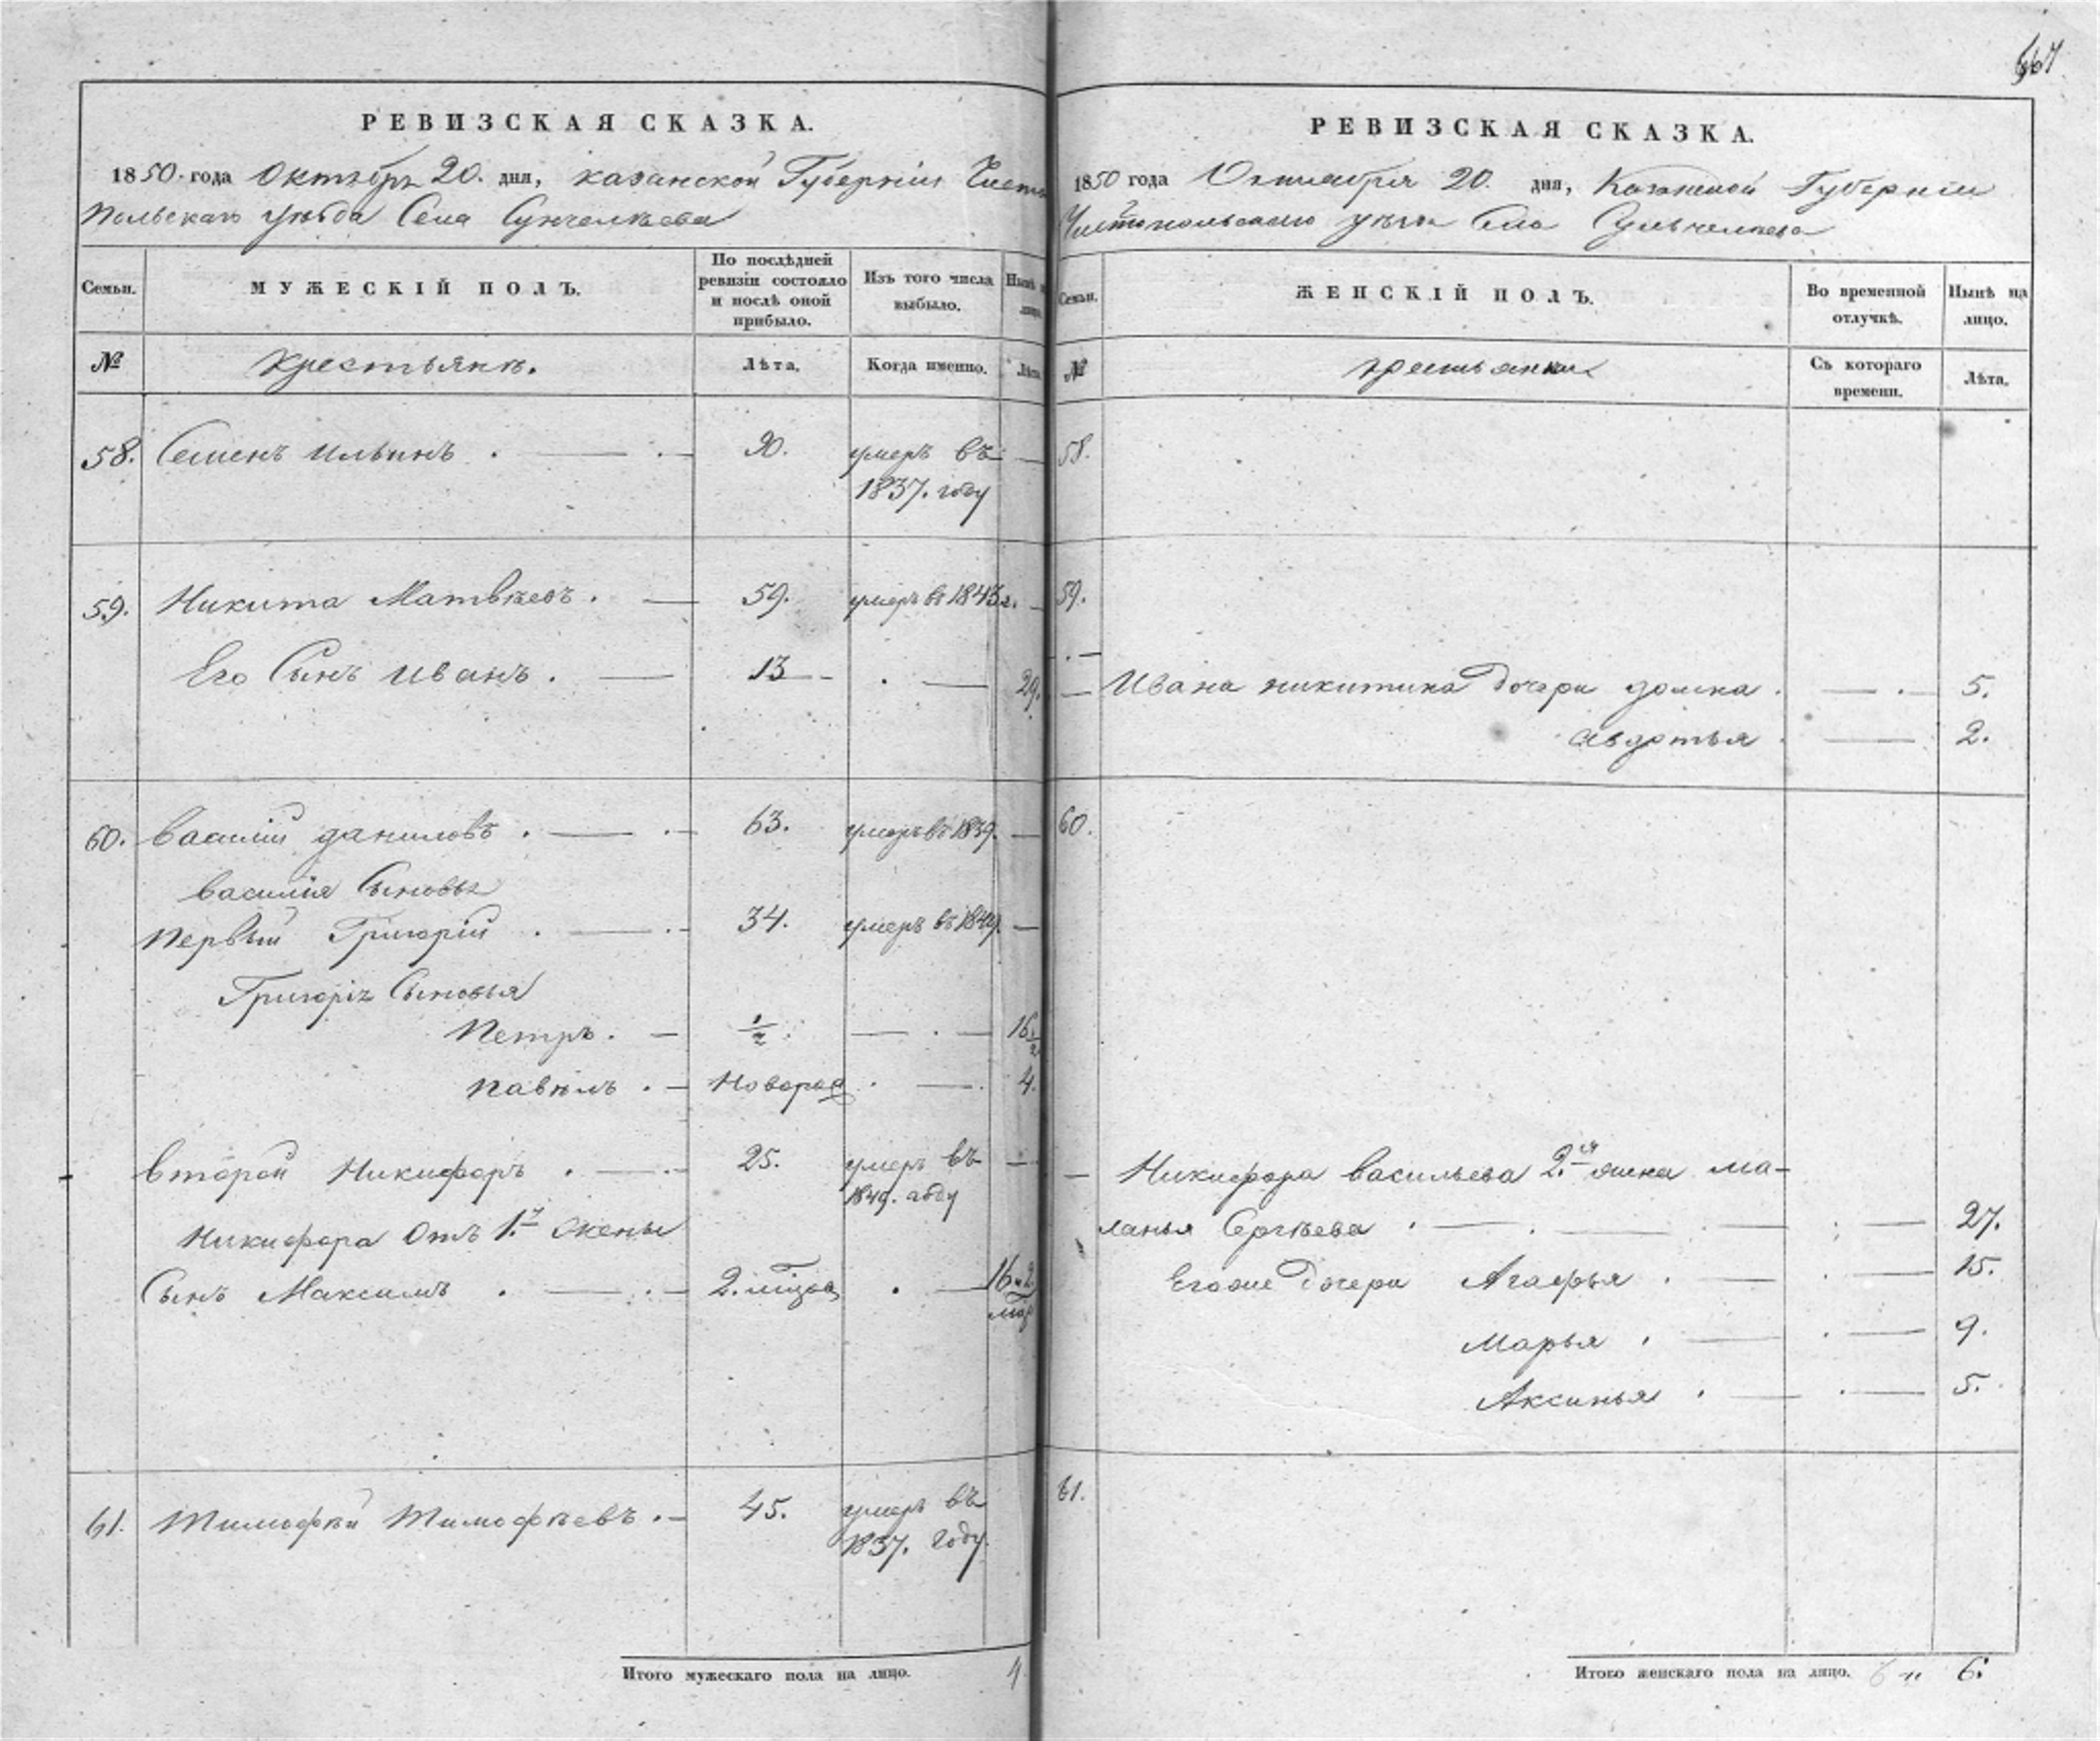 667
РЕВИЗСКАЯ СКАЗКА.
1850 года Октябрь 20. дня, казанской Губерніи Чисто
польскаго уѣзда Села Сунчелѣева
Семьи. МУЖЕСКІЙ ПОЛЪ. По послѣдней ревизіи состояло и послѣ оной прибыло. Изъ того числа выбыло. Нынѣ на лицо.
№ крестьянѣ. Лѣта. Когда именно. Лѣта
58. Семенъ ильинъ . — 20. умеръ въ —
1837. году
59. Никита Матвѣевъ . — 59. умеръ въ 1843 г. —
Его Сынъ иванъ . — 13 . — 29.
60. василій даниловъ . — 63. умеръ въ 1839. —
василія Сыновья
первый Григорій . — 34. умеръ въ 1849. —
Григорія Сыновья
петръ . — 1/2 . — 16 1/2
павѣлъ . — Новорож . — 4.
второй Никифоръ . — 25. умеръ въ —
1849. году
Никифора Отъ 1.й жены
Сынъ Максимъ . — 2. мѣсяц . — 16 и 2
мѣс
61. Тимофѣй Тимофѣевъ . — 45. умеръ въ
1837. году
Итого мужескаго пола на лицо. 4
РЕВИЗСКАЯ СКАЗКА.
1850 года Октября 20. дня, Казанской Губерніи
Чистопольскаго уѣзда Села Сунчелѣева
Семьи. ЖЕНСКІЙ ПОЛЪ. Во временной отлучкѣ. Нынѣ на лицо.
№ крестьянки Съ котораго времени. Лѣта.
58.
59.
— Ивана никитина дочери домна . — . — 5.
авдотья . — 2.
60.
— Никифора васильева 2.я жена ма-
ланья Сергѣева . — . — 27.
Егоже дочери Агафья . — . — 15.
Марья . — . — 9.
Аксинья . — . — 5.
61.
Итого женскаго пола на лицо. 6 6.